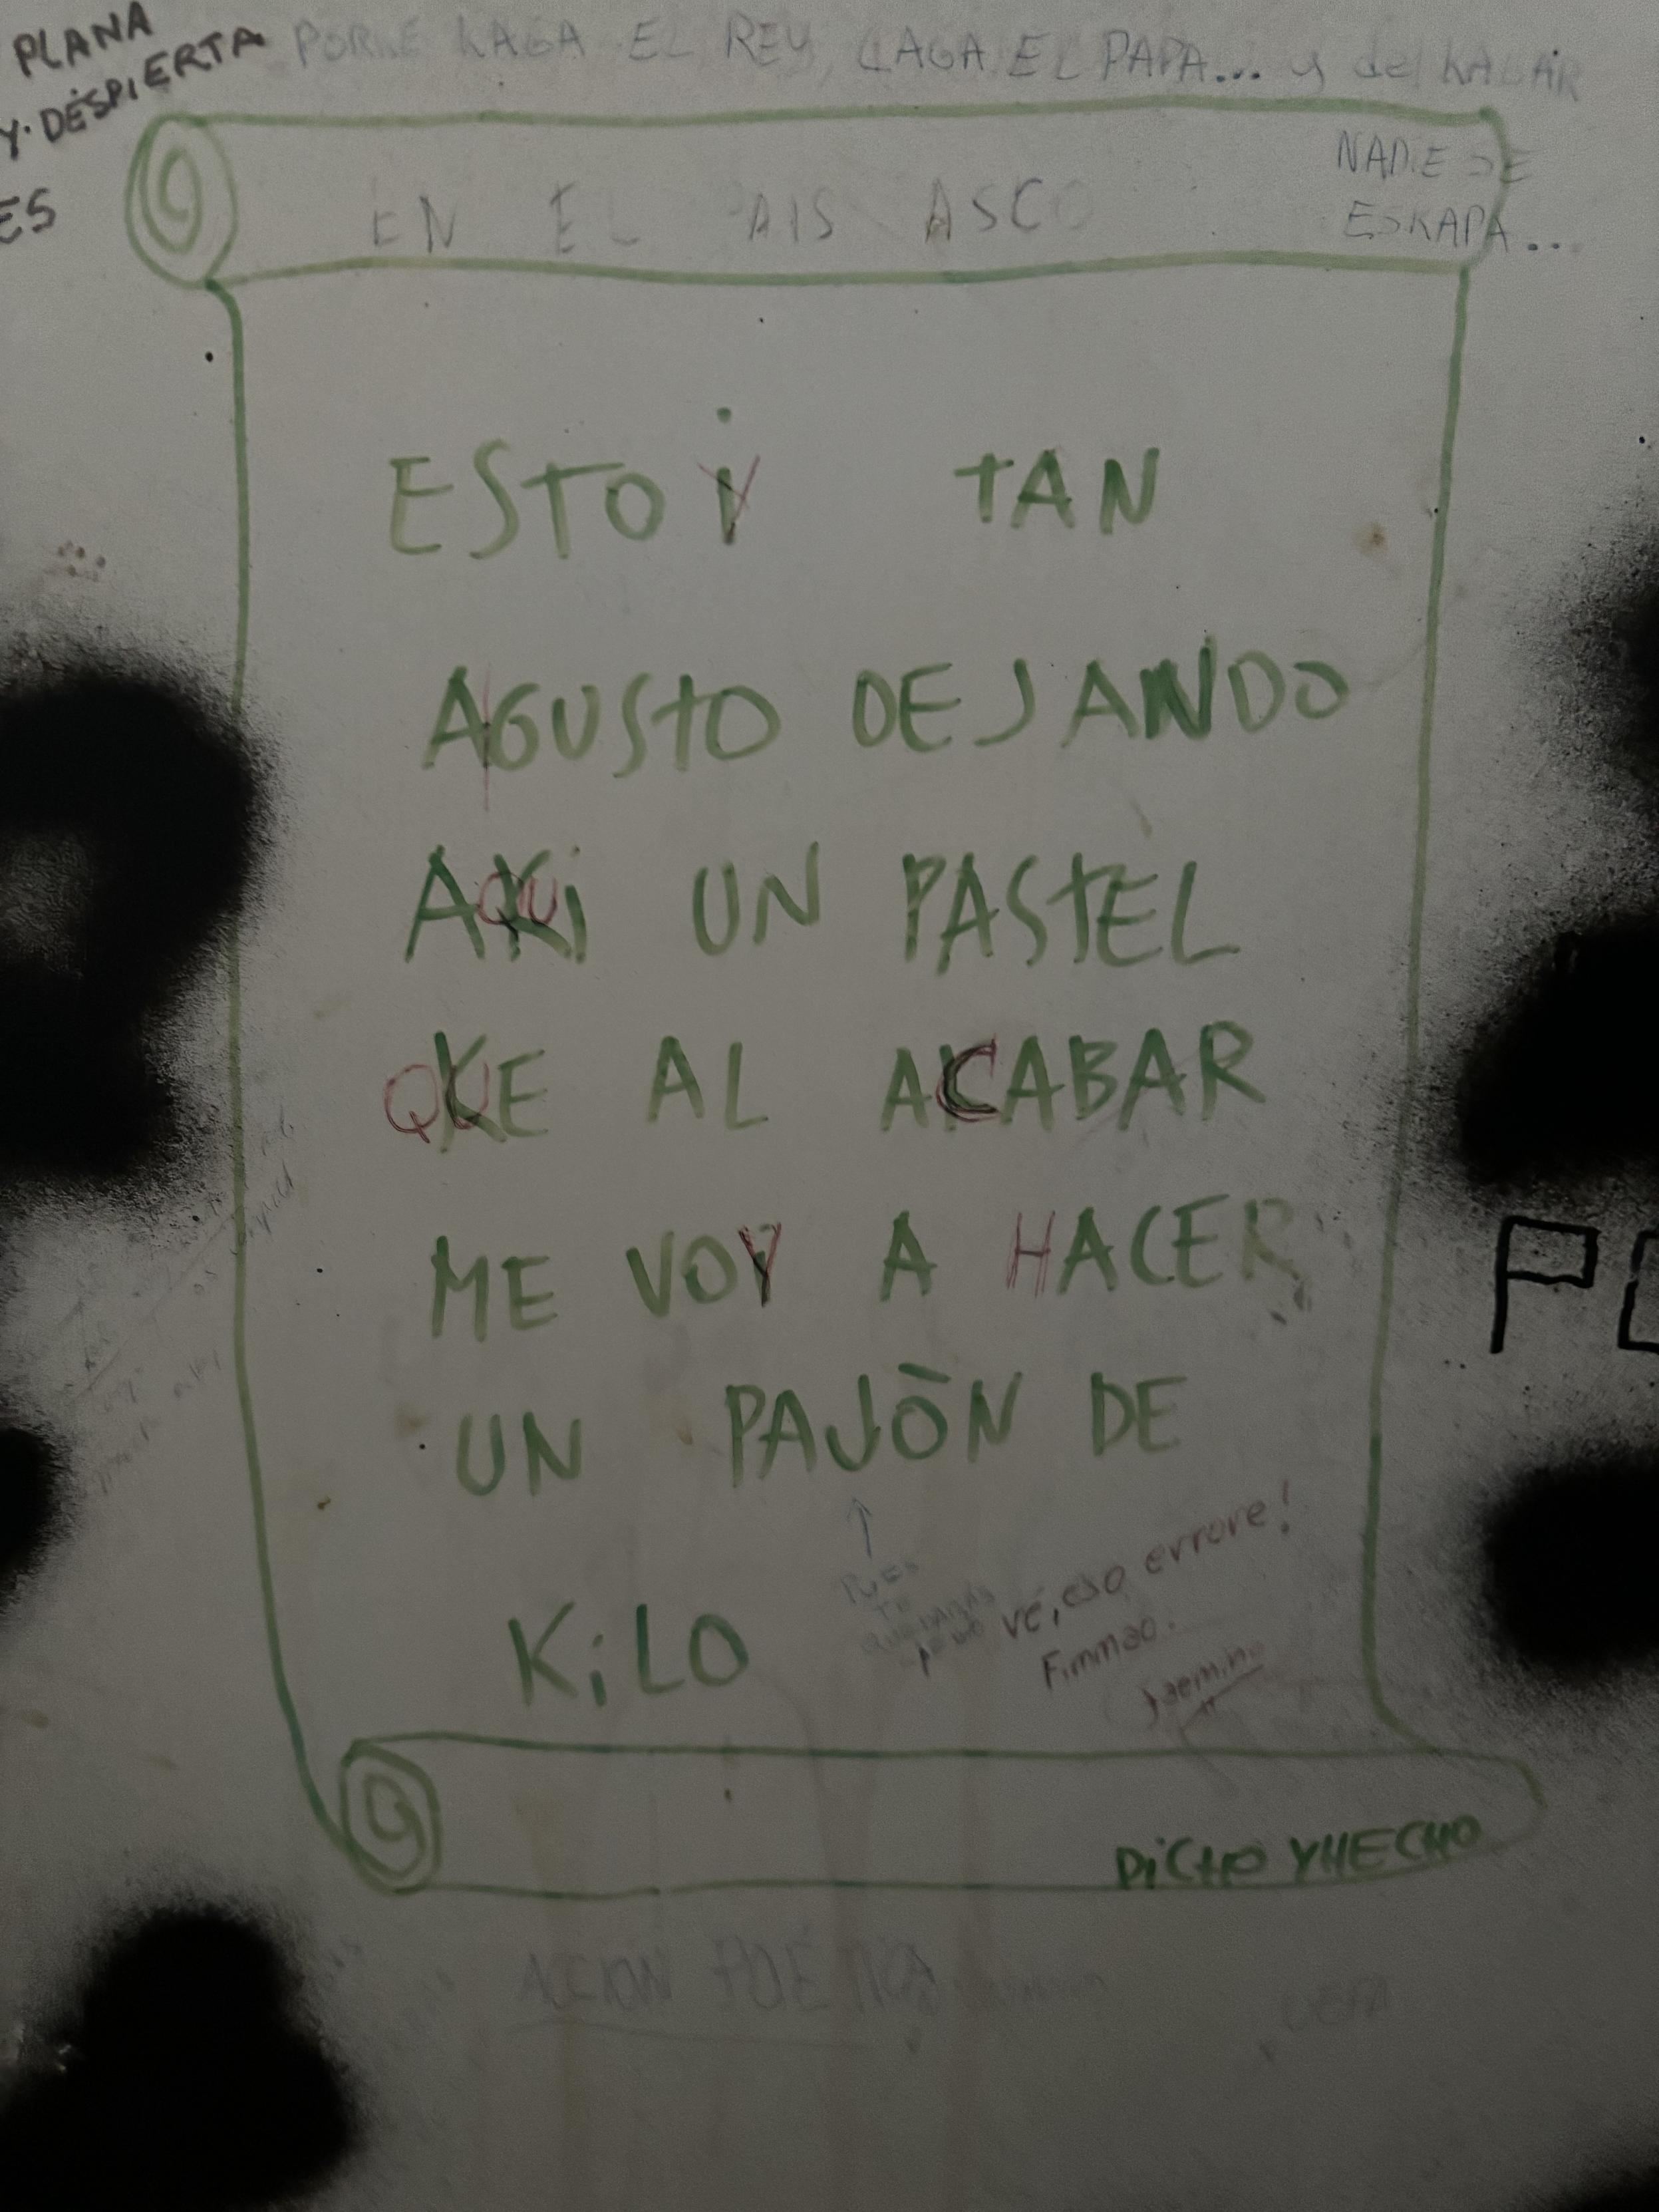 PLANA
Y DESPIERTA
ES
PORKE KAGA EL REY, CAGA EL PAPA... y del KAGAR
NADIE SE
ESKAPA...
EN EL PAIS ASCO
ESTOY TAN
AGUSTO DEJANDO
AQUi UN PASTEL
QUE AL ACABAR
ME VOY A HACER
UN PAJÒN DE
KiLO
PUES
TE
vé, eso errore!
Fimmao.
DiCHO Y HECHO
ACCION